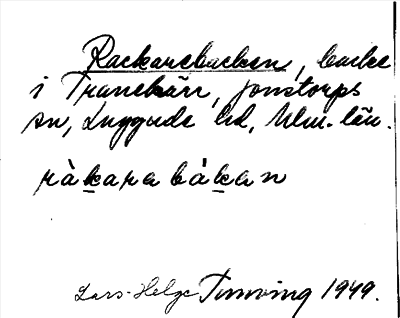 Rackarebacken, backe
i Tranekärr, Jonstorps
sn, Luggude hd, Mlm. län.
ràkara bàkan
Lars-Helge Tunving 1949.